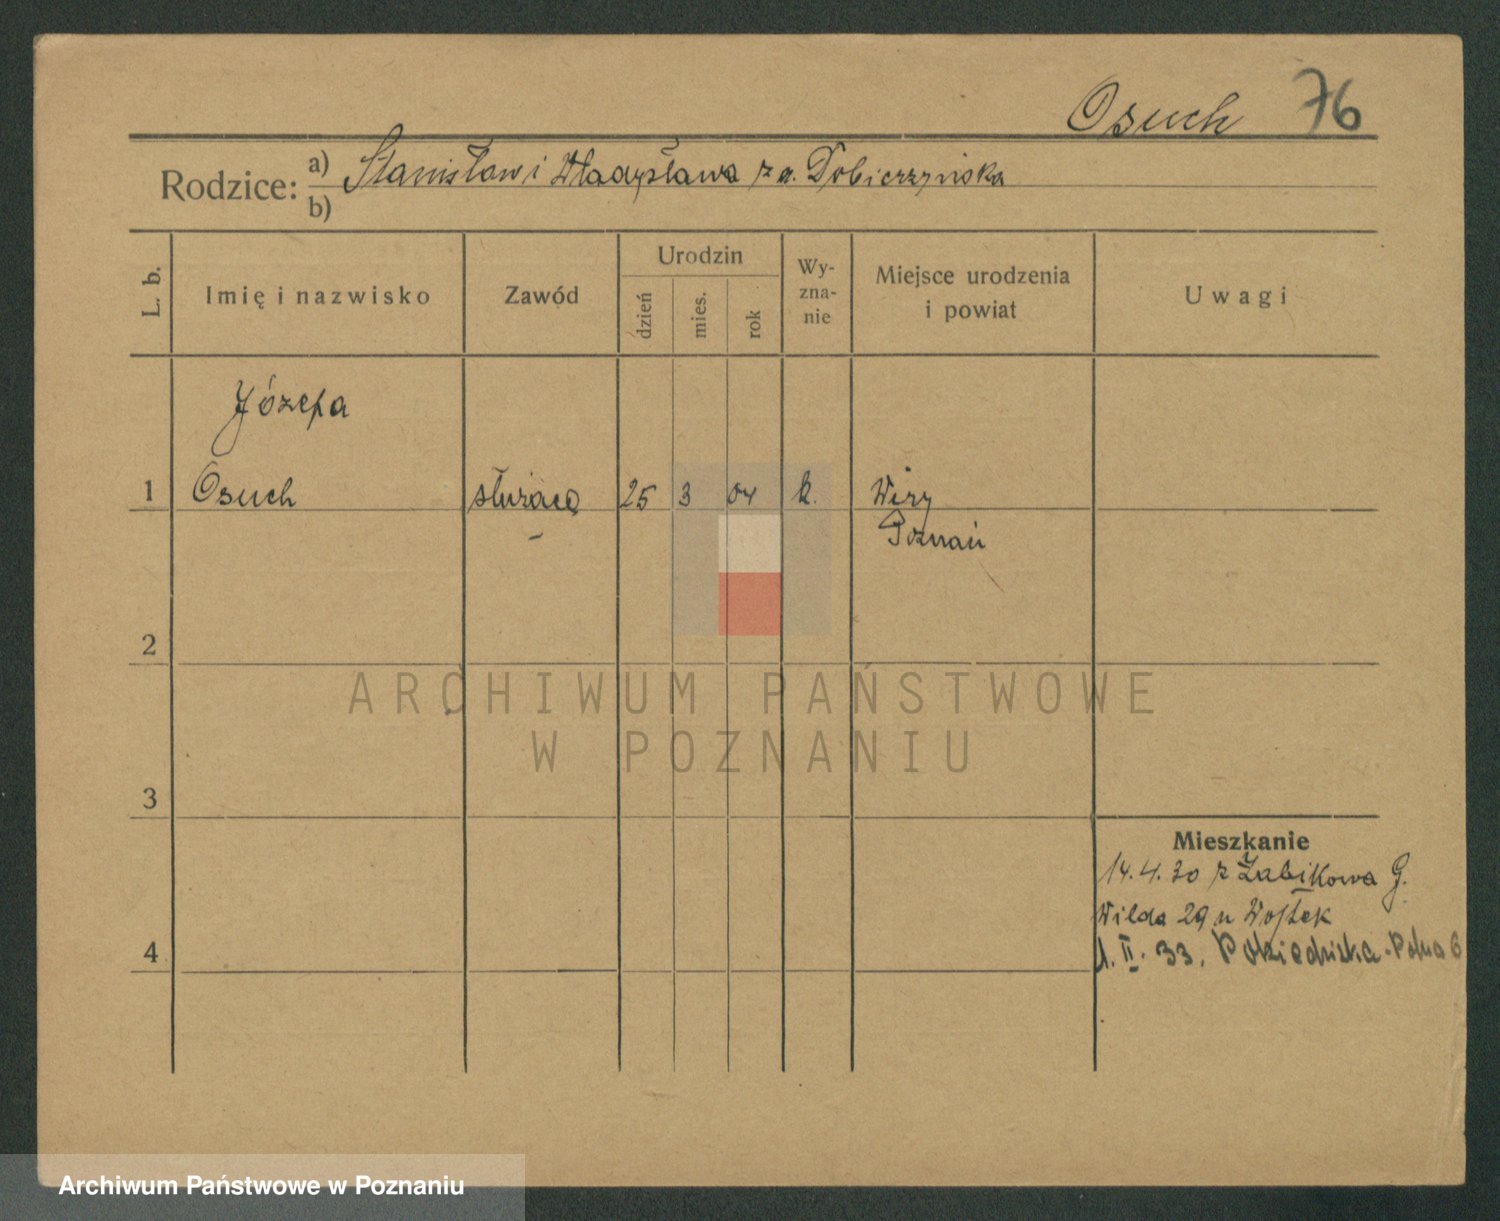 Osuch 76
Rodzice: a) Stanisław i Władysława z d. Dobierzyńska
b)
L. b.
Imię i nazwisko
Zawód
Urodzin
dzień
mies.
rok
Wy-
zna-
nie
Miejsce urodzenia
i powiat
Uwagi
Józefa
1 Osuch służąca 25 3 04 k. Wiry
Poznań
2
ARCHIWUM PAŃSTWOWE
W POZNANIU
3
Mieszkanie
14.4.30 z Żabikowa G.
Wilda 29 u Wojtek
1. II. 33.
4
Archiwum Państwowe w Poznaniu